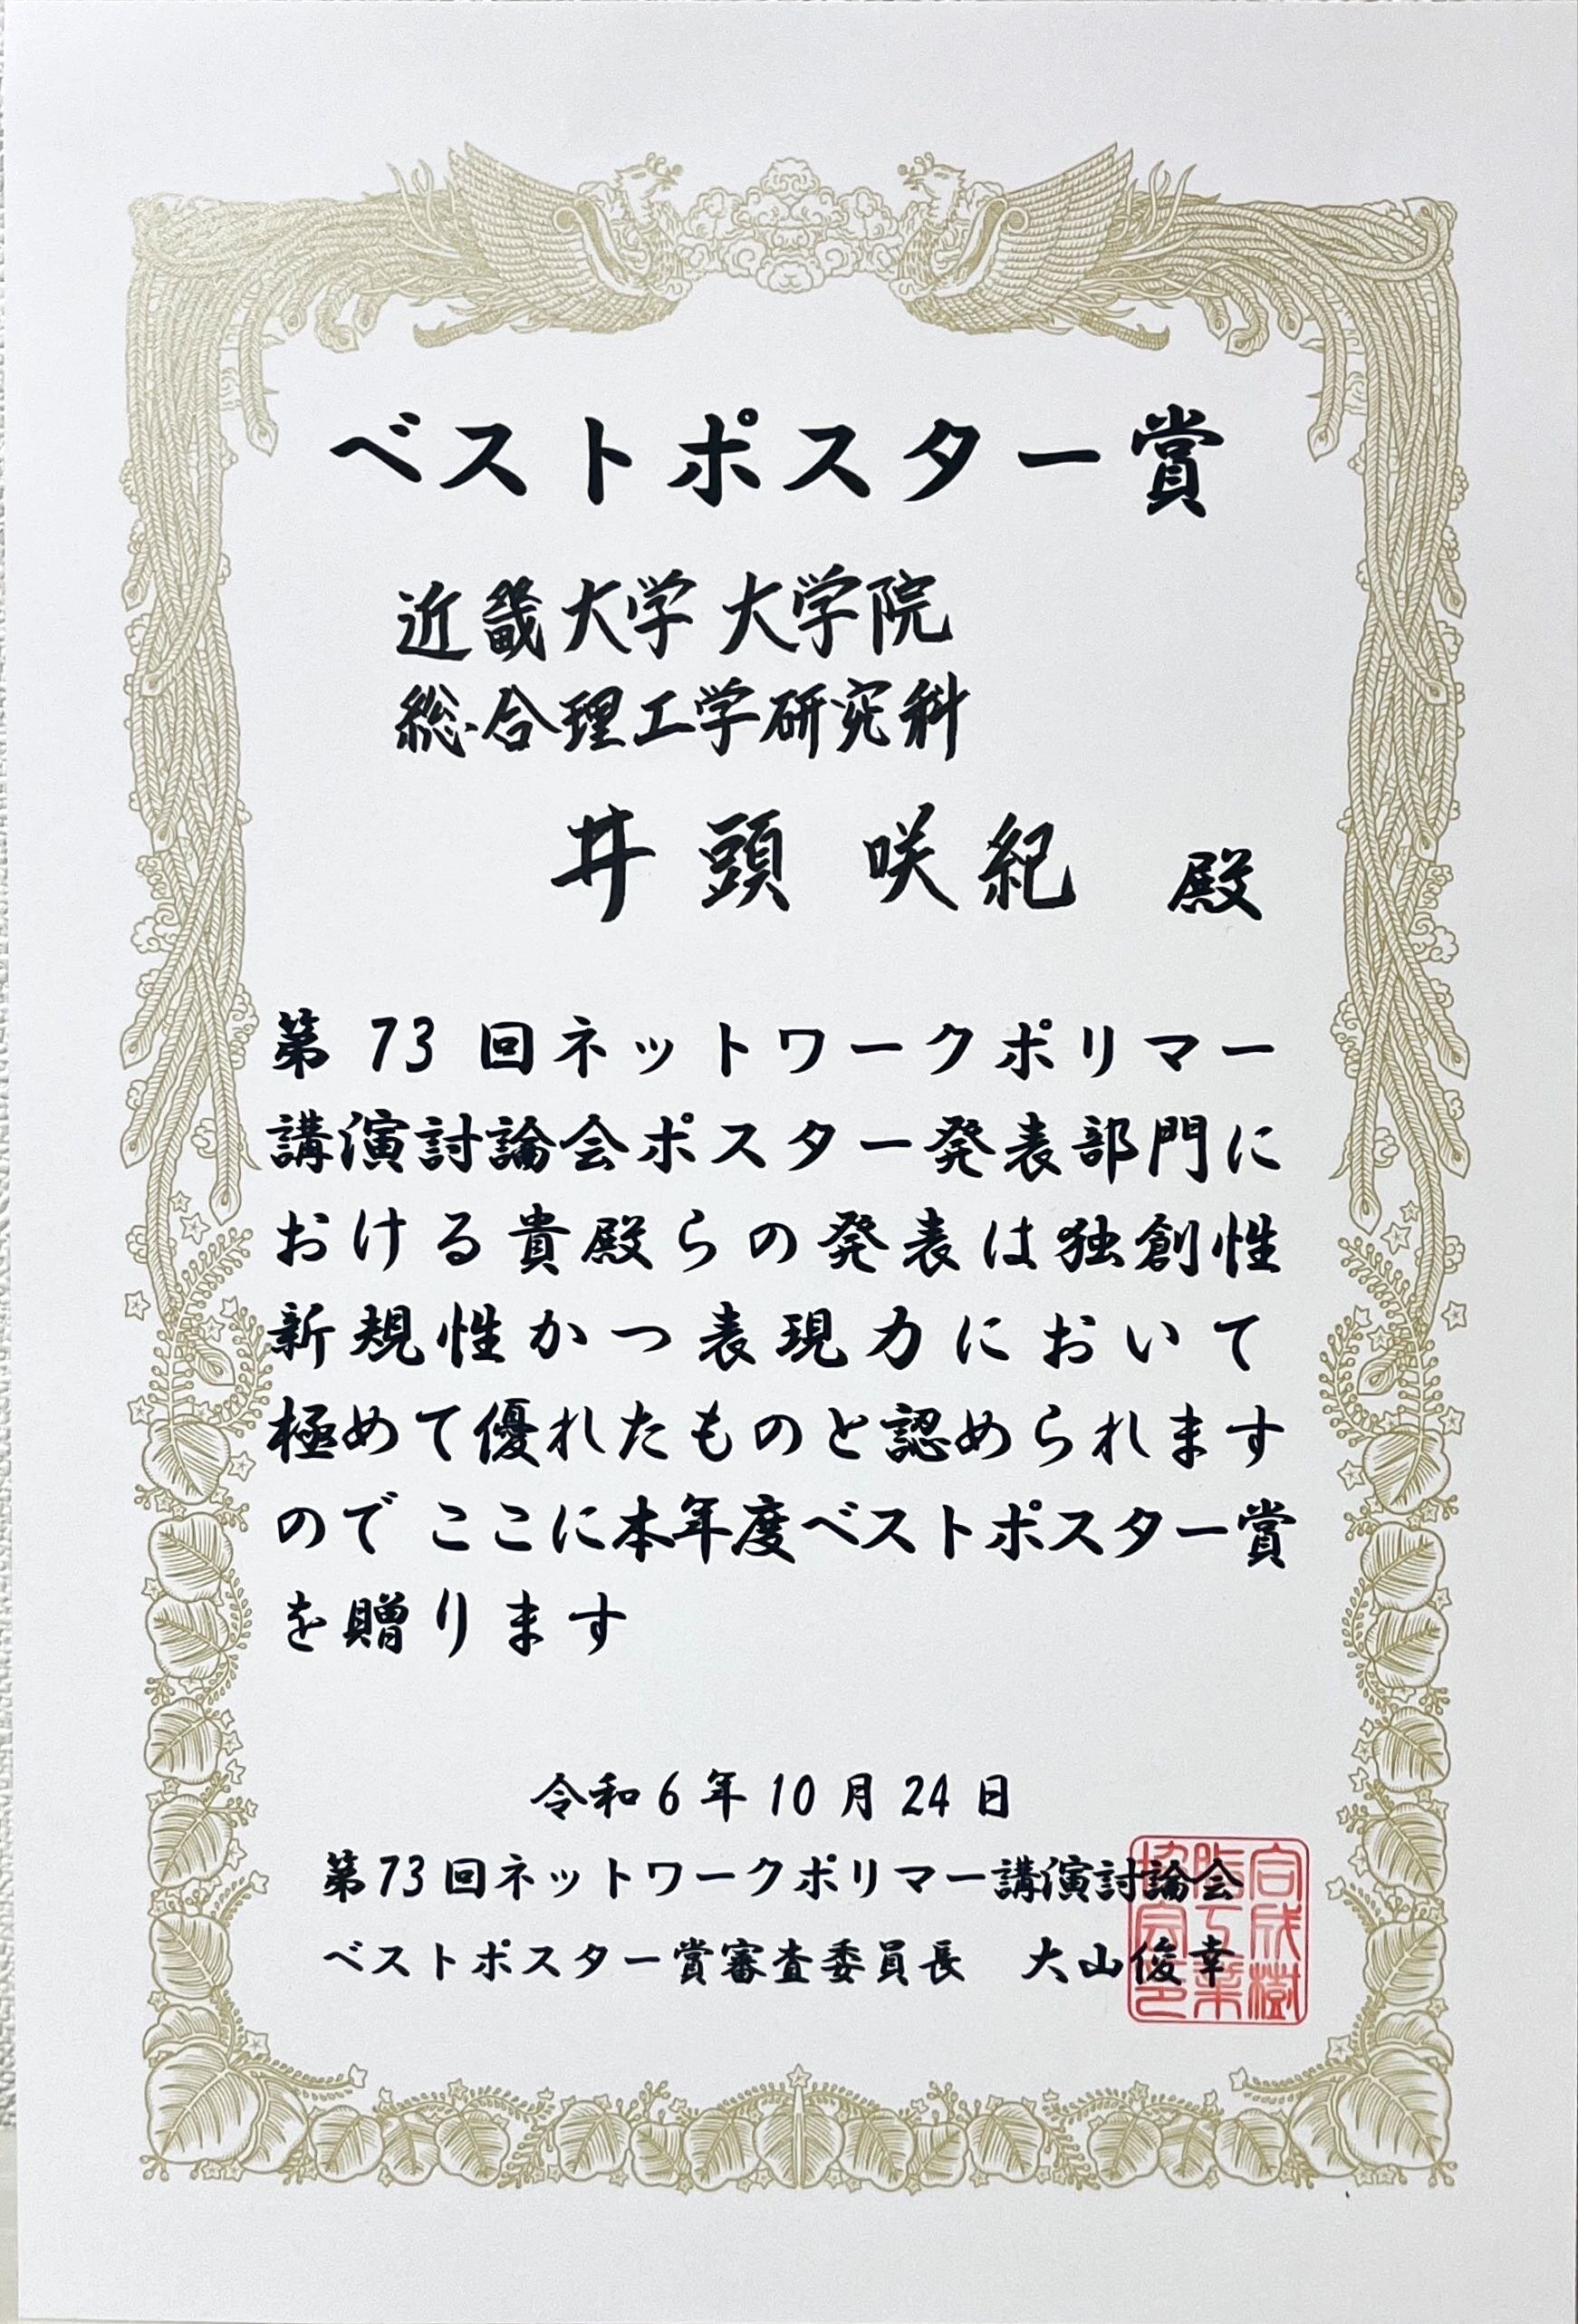 ベストポスター賞
近畿大学 大学院
総合理工学研究科
井頭 咲紀 殿
第 73 回ネットワークポリマー
講演討論会ポスター発表部門に
おける貴殿らの発表は独創性
新規性かつ表現力において
極めて優れたものと認められます
ので ここに本年度ベストポスター賞
を贈ります
令和 6 年 10 月 24 日
第 73 回ネットワークポリマー講演討論会
ベストポスター賞審査委員長 大山俊幸
合成樹
脂工業
協会印